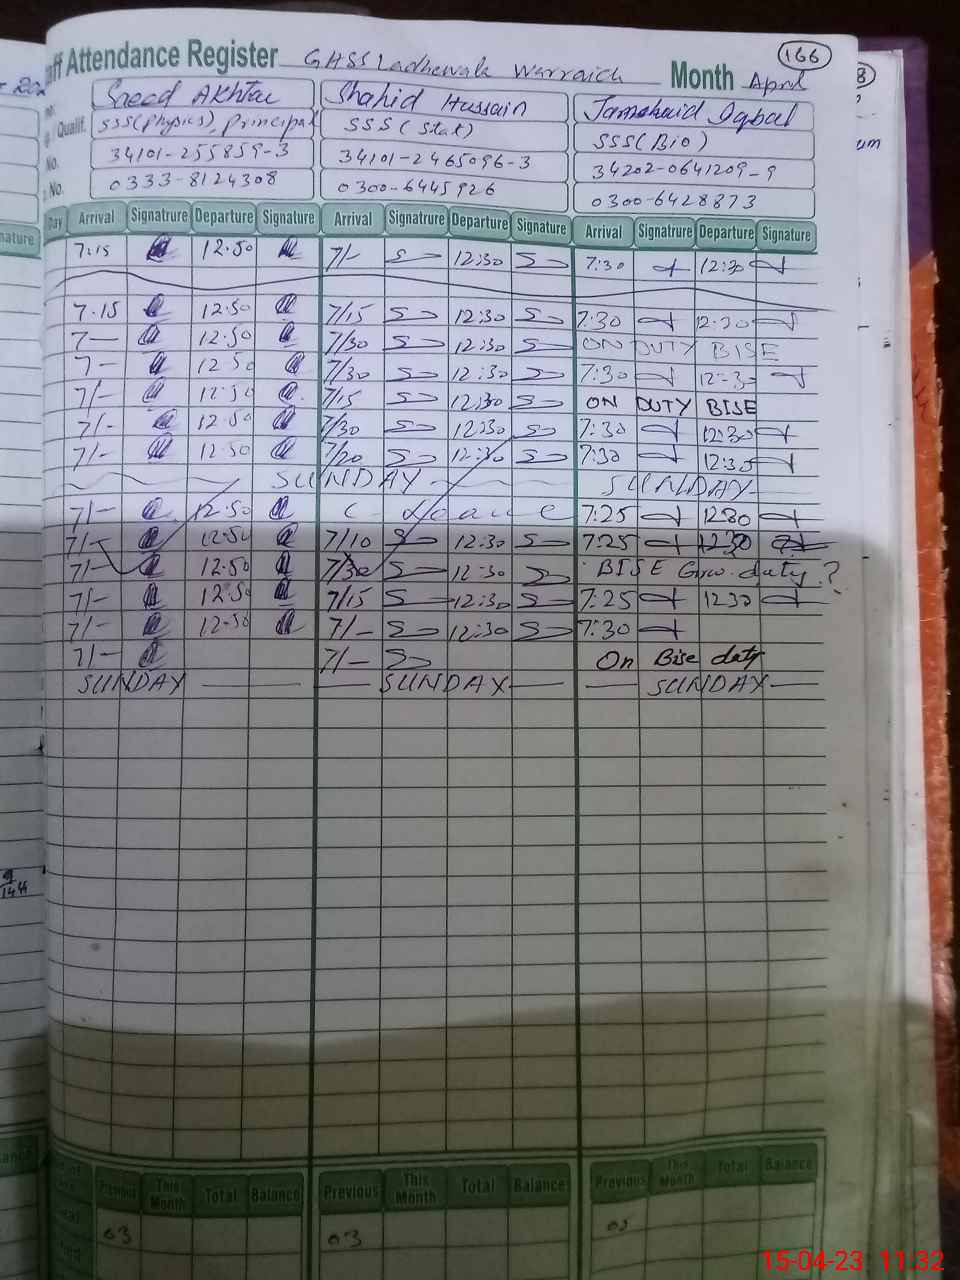 aff Attendance Register GHSS Ladhewala Warraich Month April 166
Saeed Akhtar Shahid Hussain Jamshaid Iqbal
Qualif. SSS(Physics), Principal SSS (Stat) SSS(Bio)
No. 34101-255859-3 34101-2465096-3 34202-0641209-9
No. 0333-8124308 0300-6445926 0300-6428873
Day Arrival Signatrure Departure Signature Arrival Signatrure Departure Signature Arrival Signatrure Departure Signature
7:15 12.50 7/- 12:30 7:30 12:30
7.15 12.50 7/15 12:30 7:30 12:30
7— 12.50 7/30 12:30 ON DUTY BISE
7- 12.50 7/30 12:30 7:30 12:30
7/- 12.50 7/15 12:30 ON DUTY BISE
7/- 12.50 7/30 12:30 7:30 12:30
7/- 12.50 7/20 12:30 7:30 12:30
SUNDAY SUNDAY
7/- 12.50 C- Leave 7:25 1230
7/- 12.50 7/10 12:30 7:25 1230
7/- 12.50 7/30 12:30 BISE Guj. duty ?
7/- 12.50 7/15 12:30 7:25 1230
7/- 12.50 7/- 12:30 7:30
7/- 7/- On Bise duty
SUNDAY SUNDAY SUNDAY
Previous This Month Total Balance Previous This Month Total Balance Previous This Month Total Balance
03 03 05
15-04-23 11:32